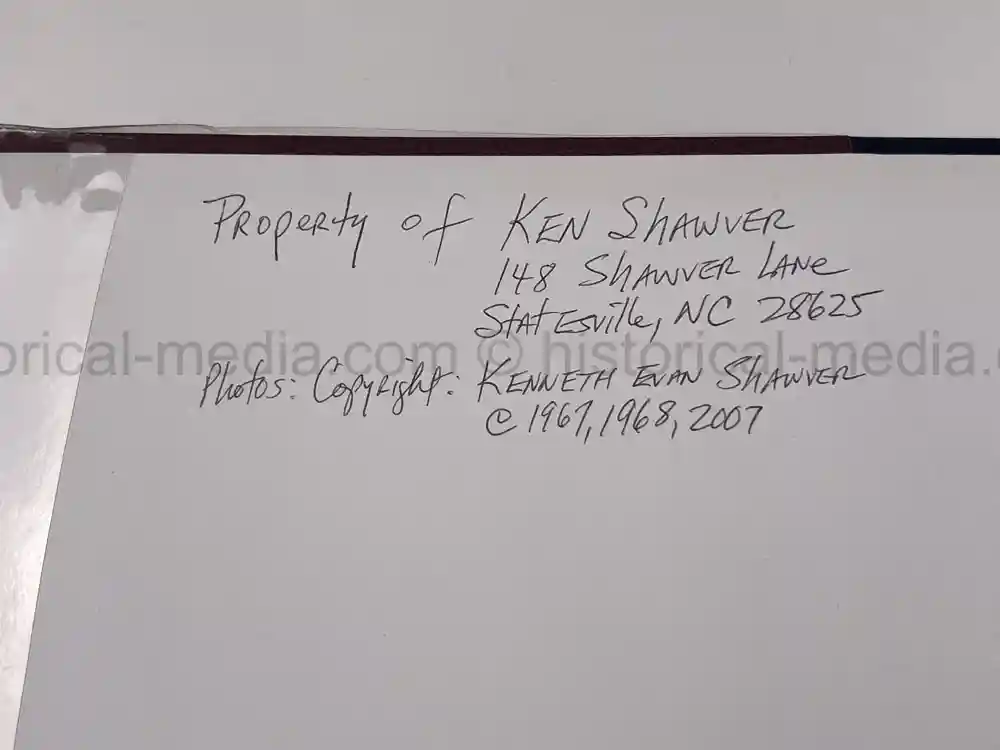 Property of Ken Shawver
148 Shawver Lane
Statesville, NC 28625
orical-media.com © historical-media.
Photos: Copyright: Kenneth Evan Shawver
© 1967, 1968, 2007